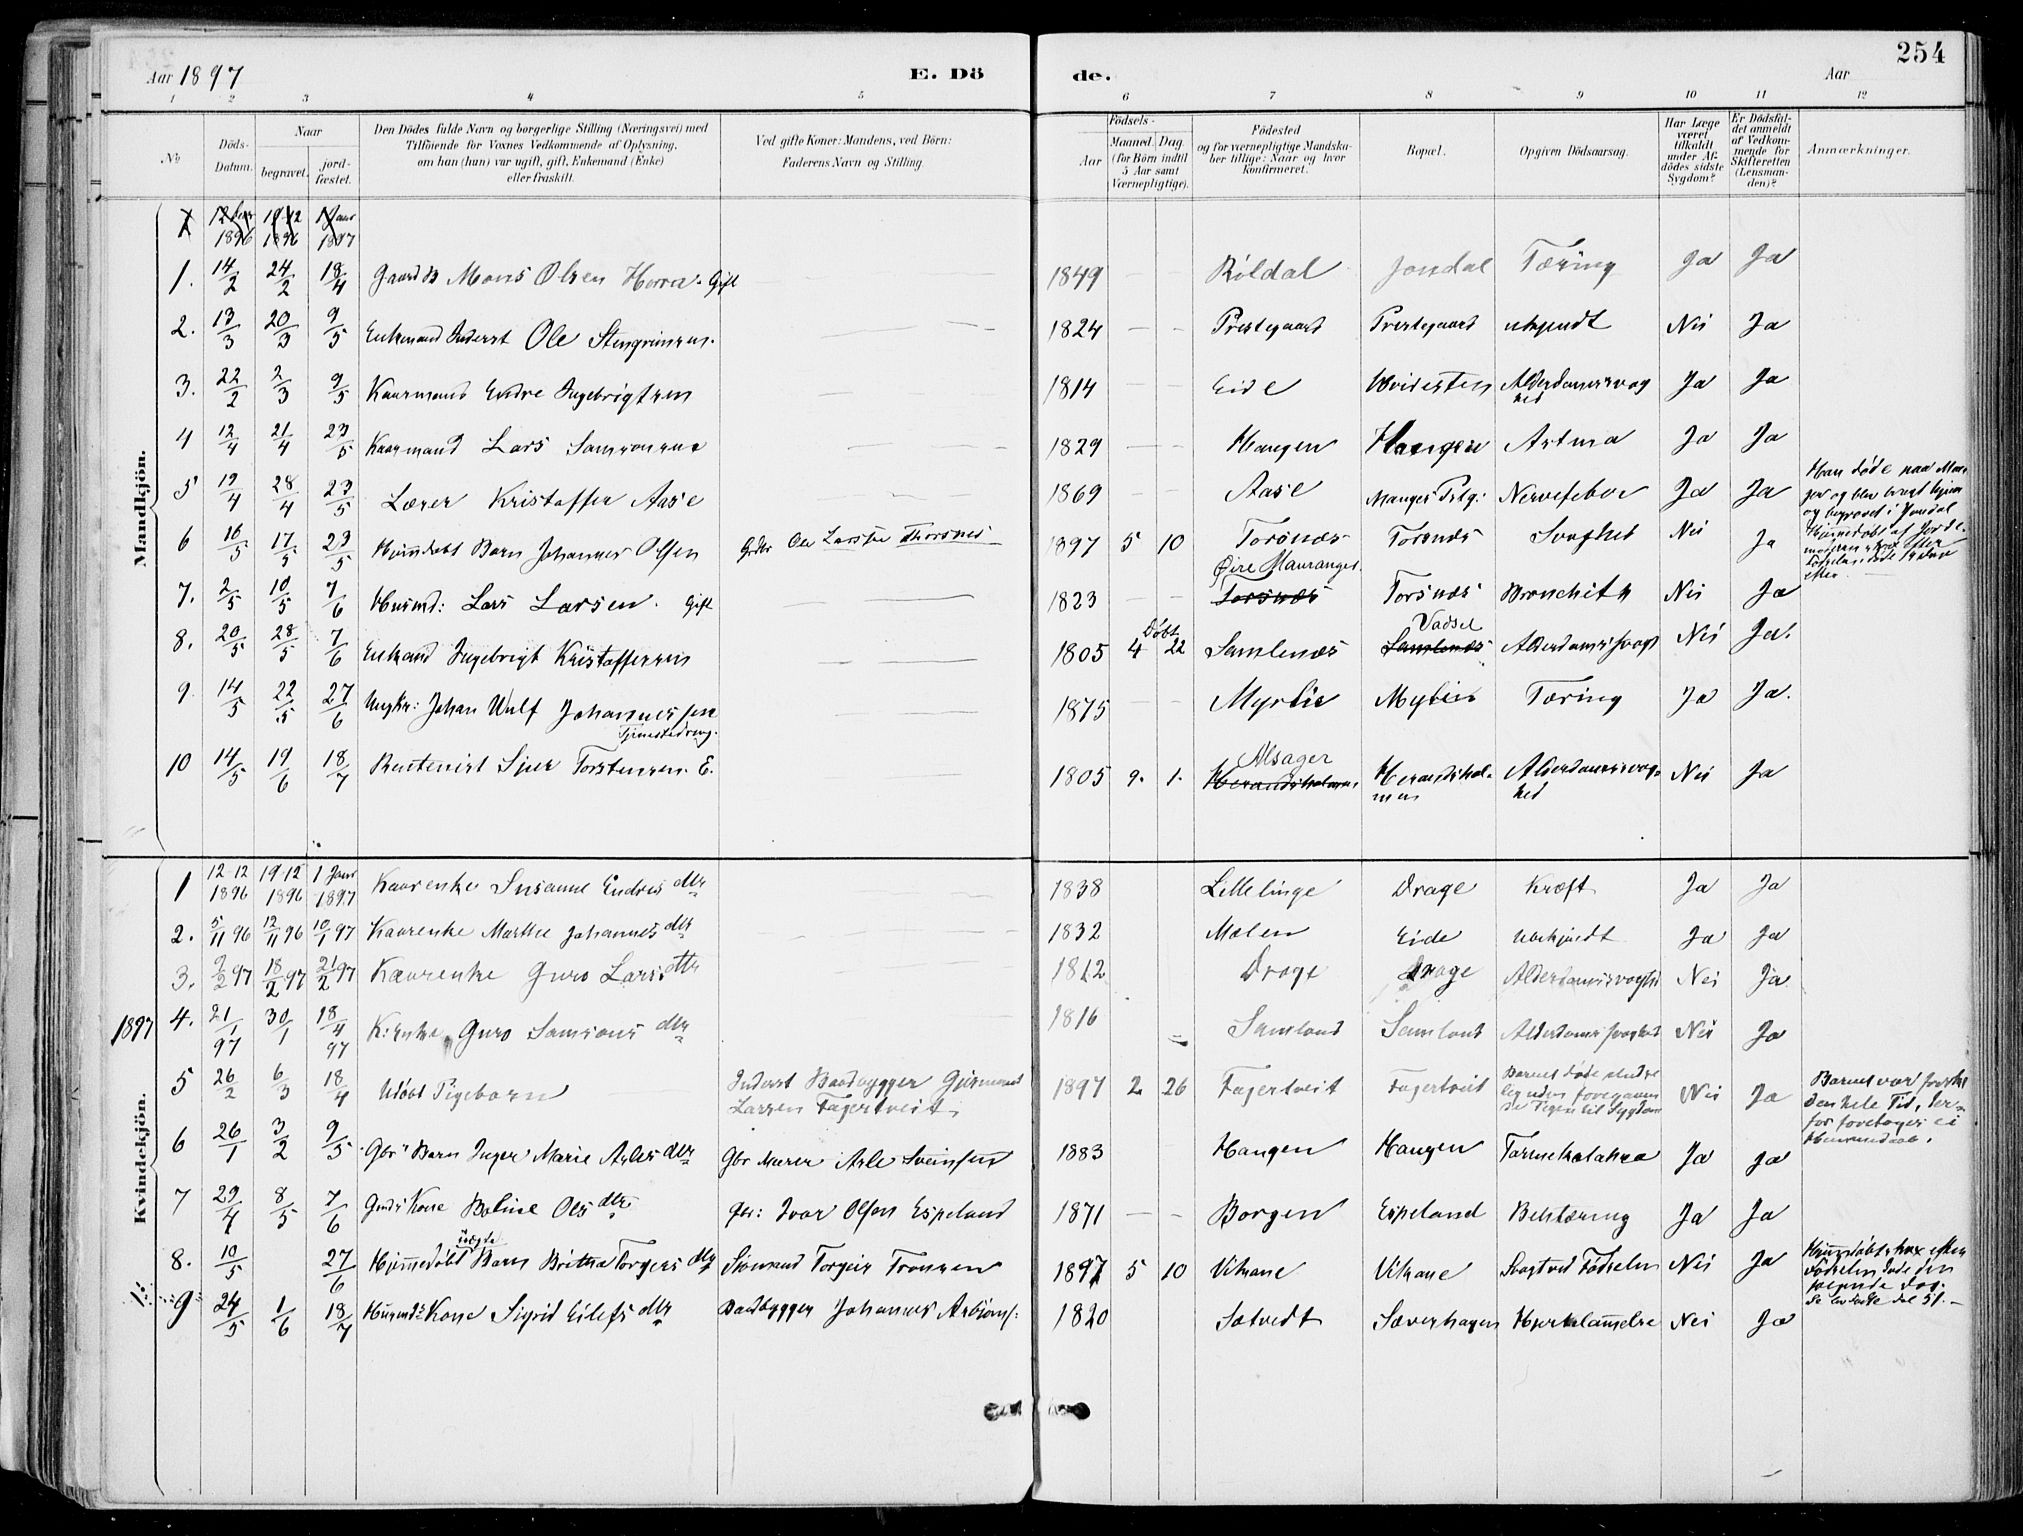 254
Aar 1897 E. Dö de. Aar
1 2 3 4 5 6 7 8 9 10 11 12
№ Döds-Datum. Naar begravet. jord-fæstet. Den Dödes fulde Navn og borgerlige Stilling (Næringsvei) med Tilföiende for Voxnes Vedkommende af Oplysning, om han (hun) var ugift, gift, Enkemand (Enke) eller fraskilt. Ved gifte Koner: Mandens, ved Börn: Faderens Navn og Stilling. Födsels- Aar Maaned. Dag. (for Börn indtil 5 Aar samt Værnepligtige). Födested og for værnepligtige Mandskaber tillige: Naar og hvor konfirmeret. Bopæl. Opgiven Dödsaarsag. Har Læge været tilkaldt under Afdödes sidste Sygdom? Er Dödsfaldet anmeldt af Vedkommende for Skifteretten (Lensmanden)? Anmærkninger.
Mandkjön.
1 12 1896 19 12 1896 1 Janr 1897
1. 14/2 24/2 18/4 Gaardb Mons Olsen Gift 1849 Röldal Jondal Tæring Ja Ja
2. 13/3 20/3 9/5 Enkemand Inderst Ole Stengrimsen. 1824 Prestegaard Prestegaard ukjendt Nei Ja
3. 22/2 2/3 9/5 Kaarmand Endre Ingebrigtsen 1814 Eide Hvidesten Alderdomssvaghed Ja Ja
4 12/4 21/4 23/5 Kaarmand Lars Samsonsen 1829 Haugen Haugen Astma Ja Ja
5 19/4 28/4 23/5 Lærer Kristoffer Aase 1869 Aase Manger Prtg: Nervefeber Ja Ja Han döde paa Manger og blev bragt hjem og begravet i Jondal
6 16/5 17/5 23/5 Hjemdöbt Barn Johannes Olsen Ole Larsen Thorsnes 1897 5 10 Torsnæs Torsnæs Svaghed Nei Ja Hjemmedöbt af Jordemoderen strax efter Födselen döde
7. 2/5 10/5 7/6 Husmd: Lars Larsen. Gift 1823 Øire Mauranger. Torsnæs Torsnæs Bronchitis Nei Ja
8. 20/5 28/5 7/6 Enkemd Ingebrigt Kristoffersen 1805 Döbt 4 22 Samlenæs Vadsel Samlenæs Alderdomssvagh Nei Ja.
9. 14/5 22/5 27/6 Ungkr: Johan Wulf Johannessen Tjenestedreng. 1875 Myrlie Myrlie Tæring Ja Ja.
10 14/5 19/6 18/7 Rentenist Sjur Torstensen. E. 1805 9. 1. Alsager Herandsholmen Herandsholmen Alderdomssvaghed Nei Ja
Kvindekjön.
1 12 12 1896 19 12 1896 1 Janr 1897 Kaarenke Susanne Endresdtr 1838 Lillelinge Drage Kræft Ja Ja
2. 5/11 96 12/11 96 10/1 97 Kaarenke Marthe Johannesdtr 1832 Molen Eide Ubekjendt Ja Ja
3. 9/2 97 18/2 97 21/2 97 Kaarenke Guro Larsdtr 1812 Drage Drage Alderdomssvaghd Nei Ja
1897 4. 21/1 97 30/1 18/4 97 K: Enke Guro Samsonsdtr 1816 Samland Samland Alderdomssvaghed Nei Ja
5 26/2 6/3 18/4 Udöbt Pigebarn Inderst Baadbygger Gjermund Larsen Fagertveit 1897 2 26 Fagertveit Fagertveit Barnet döde pludselig uden foregaaende Tegn til Sygdom Nei Ja Barnet var friskt den hele Tid, derfor foretoges ei Hjemmedaab.
6 26/1 3/2 9/5 Gbr Barn Inger Marie Aslesdtr Gbr Asle Sveinsen 1883 Haugen Haugen Tarmekatahrr Ja Ja
7 29/4 8/5 7/6 Gmds Kone Boline Olsdtr Gbr: Ivar Olsen Espeland 1871 Borgen Espeland Behtæring Ja Ja
8. 10/5 27/6 Hjemmedöbt uægte Barn Britha Torgersdtr Torgeir Tronsen 1897 5 10 Vikane Vikane Svag ved Födselen Nei Ja Hjemmedöbt strax efter Födselen, döde den fölgende Dag.
9 24/5 1/6 18/7 Husmds Kone Sigrid Eilefsdtr Baadbygger Johannes Asbjörns: 1820 Sætvedt Sæverhagen Hjertelammelse Nei Ja